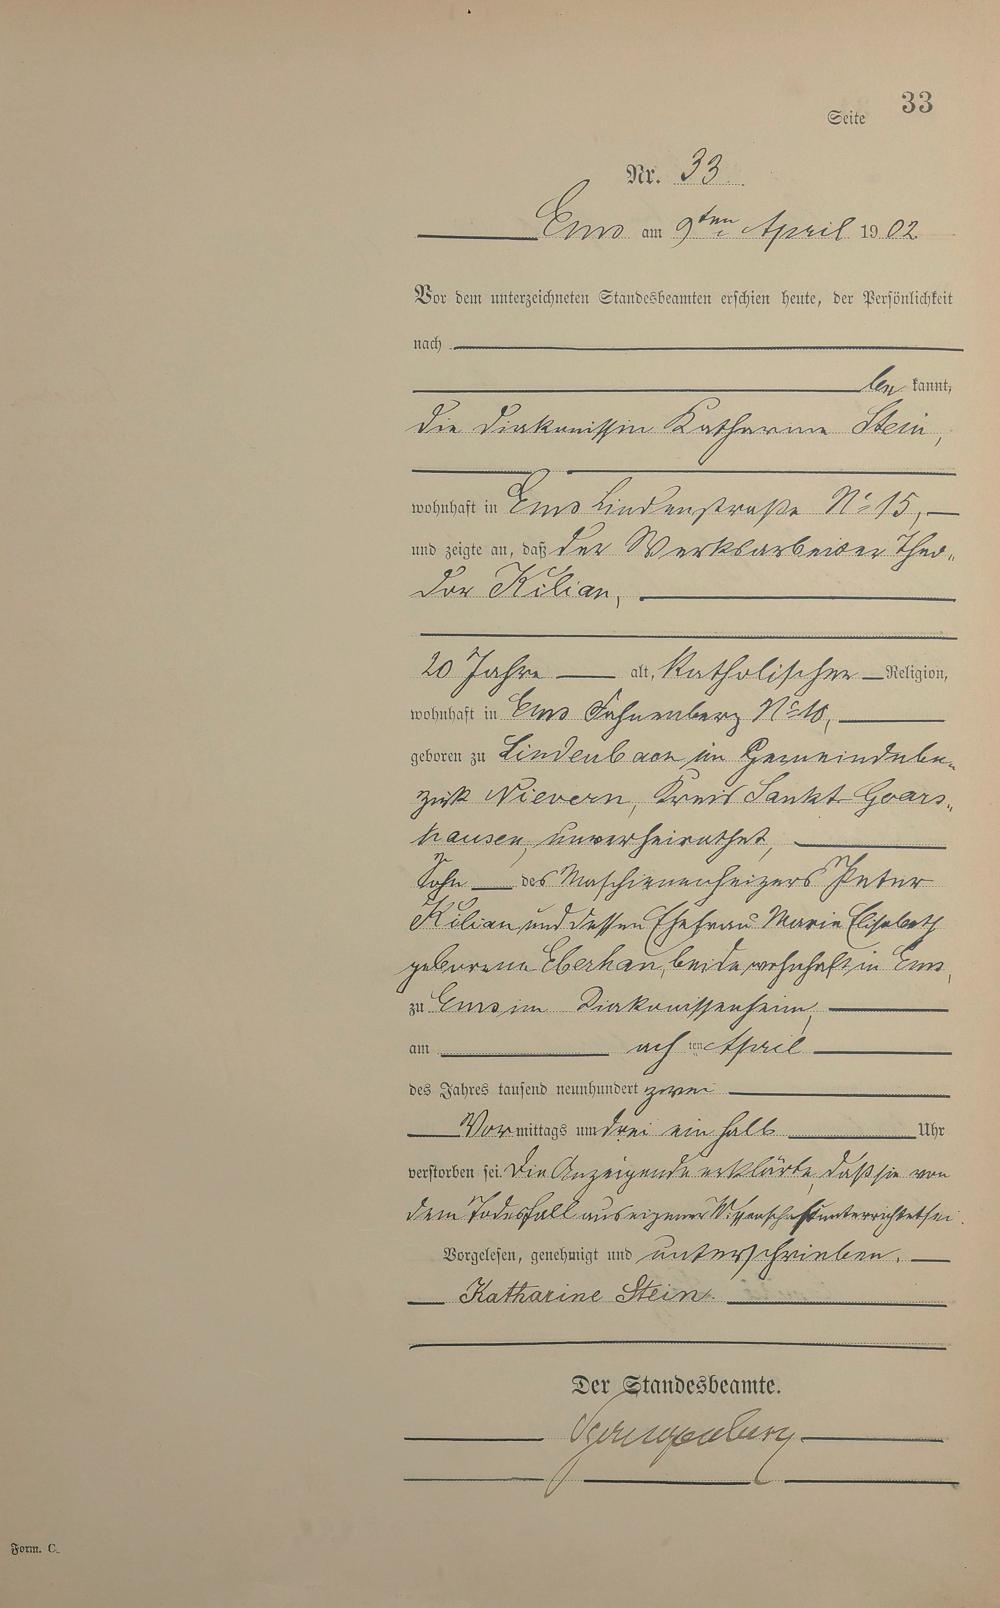 Seite 33
Nr. 33
Ems am 9ten April 1902
Vor dem unterzeichneten Standesbeamten erschien heute, der Persönlichkeit
nach
be kannt,
die Diakonissin Katharina Stein,
wohnhaft in Ems Lindenstraße No 15,
und zeigte an, daß der Werksarbeiter Theo-
dor Kilian,
20 Jahre alt, katholischer Religion,
wohnhaft in Ems Fahnenberg No 10,
geboren zu Lindenbach im Gemeindebe-
zirk Nievern, Kreis Sankt Goars-
hausen, unverheirathet,
Sohn des Maschienenheizers Peter
Kilian und dessen Ehefrau Marie Elisabeth
geborene Eberhan, beide wohnhaft in Ems,
zu Ems im Diakonissenheim,
am ach ten April
des Jahres tausend neunhundert zwei
Vor mittags um drei ein halb Uhr
verstorben sei. Die Anzeigende erklärte, daß sie von
dem Todesfall aus eigener Wissenschaft unterrichtet sei.
Vorgelesen, genehmigt und unterschrieben.
Katharine Stein.
Der Standesbeamte.
Form. C.